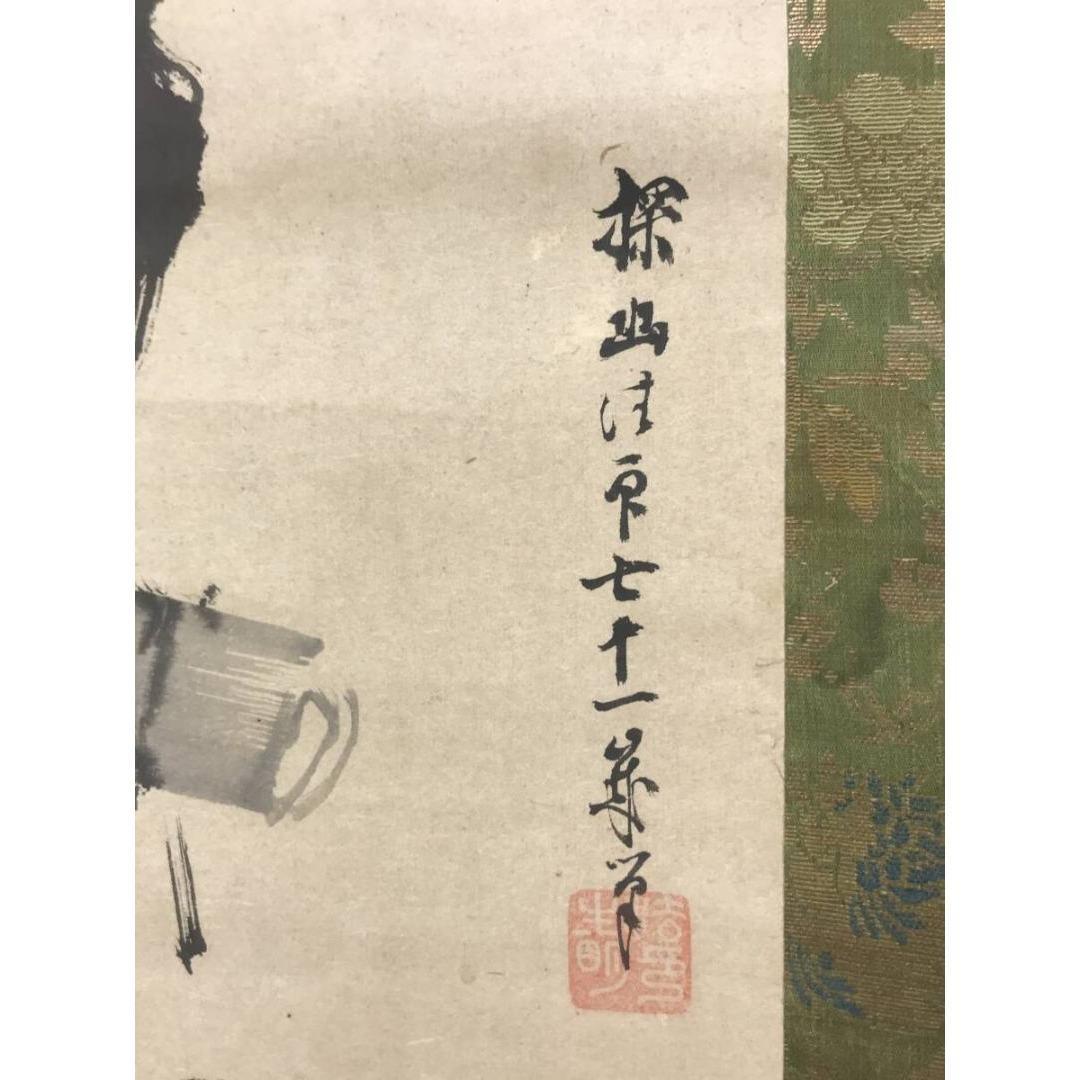 探幽法印七十一歳筆